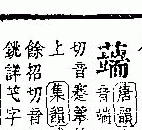 唐韻音端
切音
上集韻
餘招切音
銚詳芅字